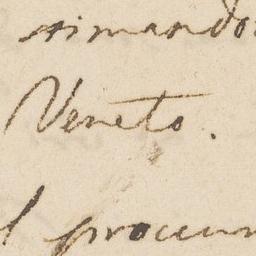 rimando
Veneto.
l procur